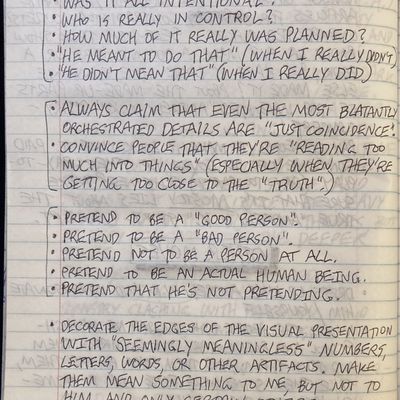 • WAS IT ALL INTENTIONAL?
• WHO IS REALLY IN CONTROL?
• HOW MUCH OF IT REALLY WAS PLANNED?
• "HE MEANT TO DO THAT" (WHEN I REALLY DIDN'T)
• "HE DIDN'T MEAN THAT" (WHEN I REALLY DID)
• ALWAYS CLAIM THAT EVEN THE MOST BLATANTLY
ORCHESTRATED DETAILS ARE "JUST COINCIDENCE".
• CONVINCE PEOPLE THAT THEY'RE "READING TOO
MUCH INTO THINGS" (ESPECIALLY WHEN THEY'RE
GETTING TOO CLOSE TO THE "TRUTH".)
• PRETEND TO BE A "GOOD PERSON".
• PRETEND TO BE A "BAD PERSON".
• PRETEND NOT TO BE A PERSON AT ALL.
• PRETEND TO BE AN ACTUAL HUMAN BEING.
• PRETEND THAT HE'S NOT PRETENDING.
• DECORATE THE EDGES OF THE VISUAL PRESENTATION
WITH "SEEMINGLY MEANINGLESS" NUMBERS,
LETTERS, WORDS, OR OTHER ARTIFACTS. MAKE
THEM MEAN SOMETHING TO ME, BUT NOT TO
HIM, AND ONLY CERTAIN